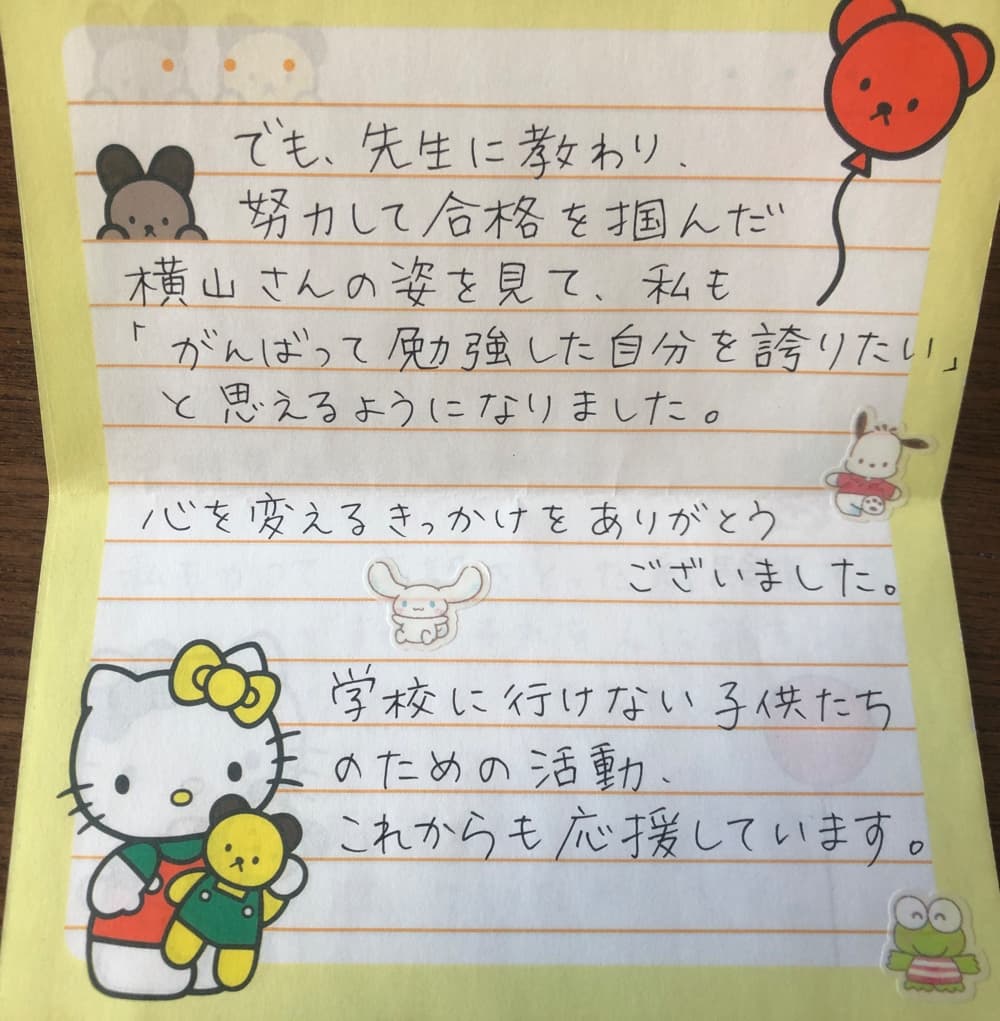 でも、先生に教わり、
努力して合格を掴んだ
横山さんの姿を見て、私も
「がんばって勉強した自分を誇りたい」
と思えるようになりました。
心を変えるきっかけをありがとう
ございました。
学校に行けない子供たち
のための活動、
これからも応援しています。